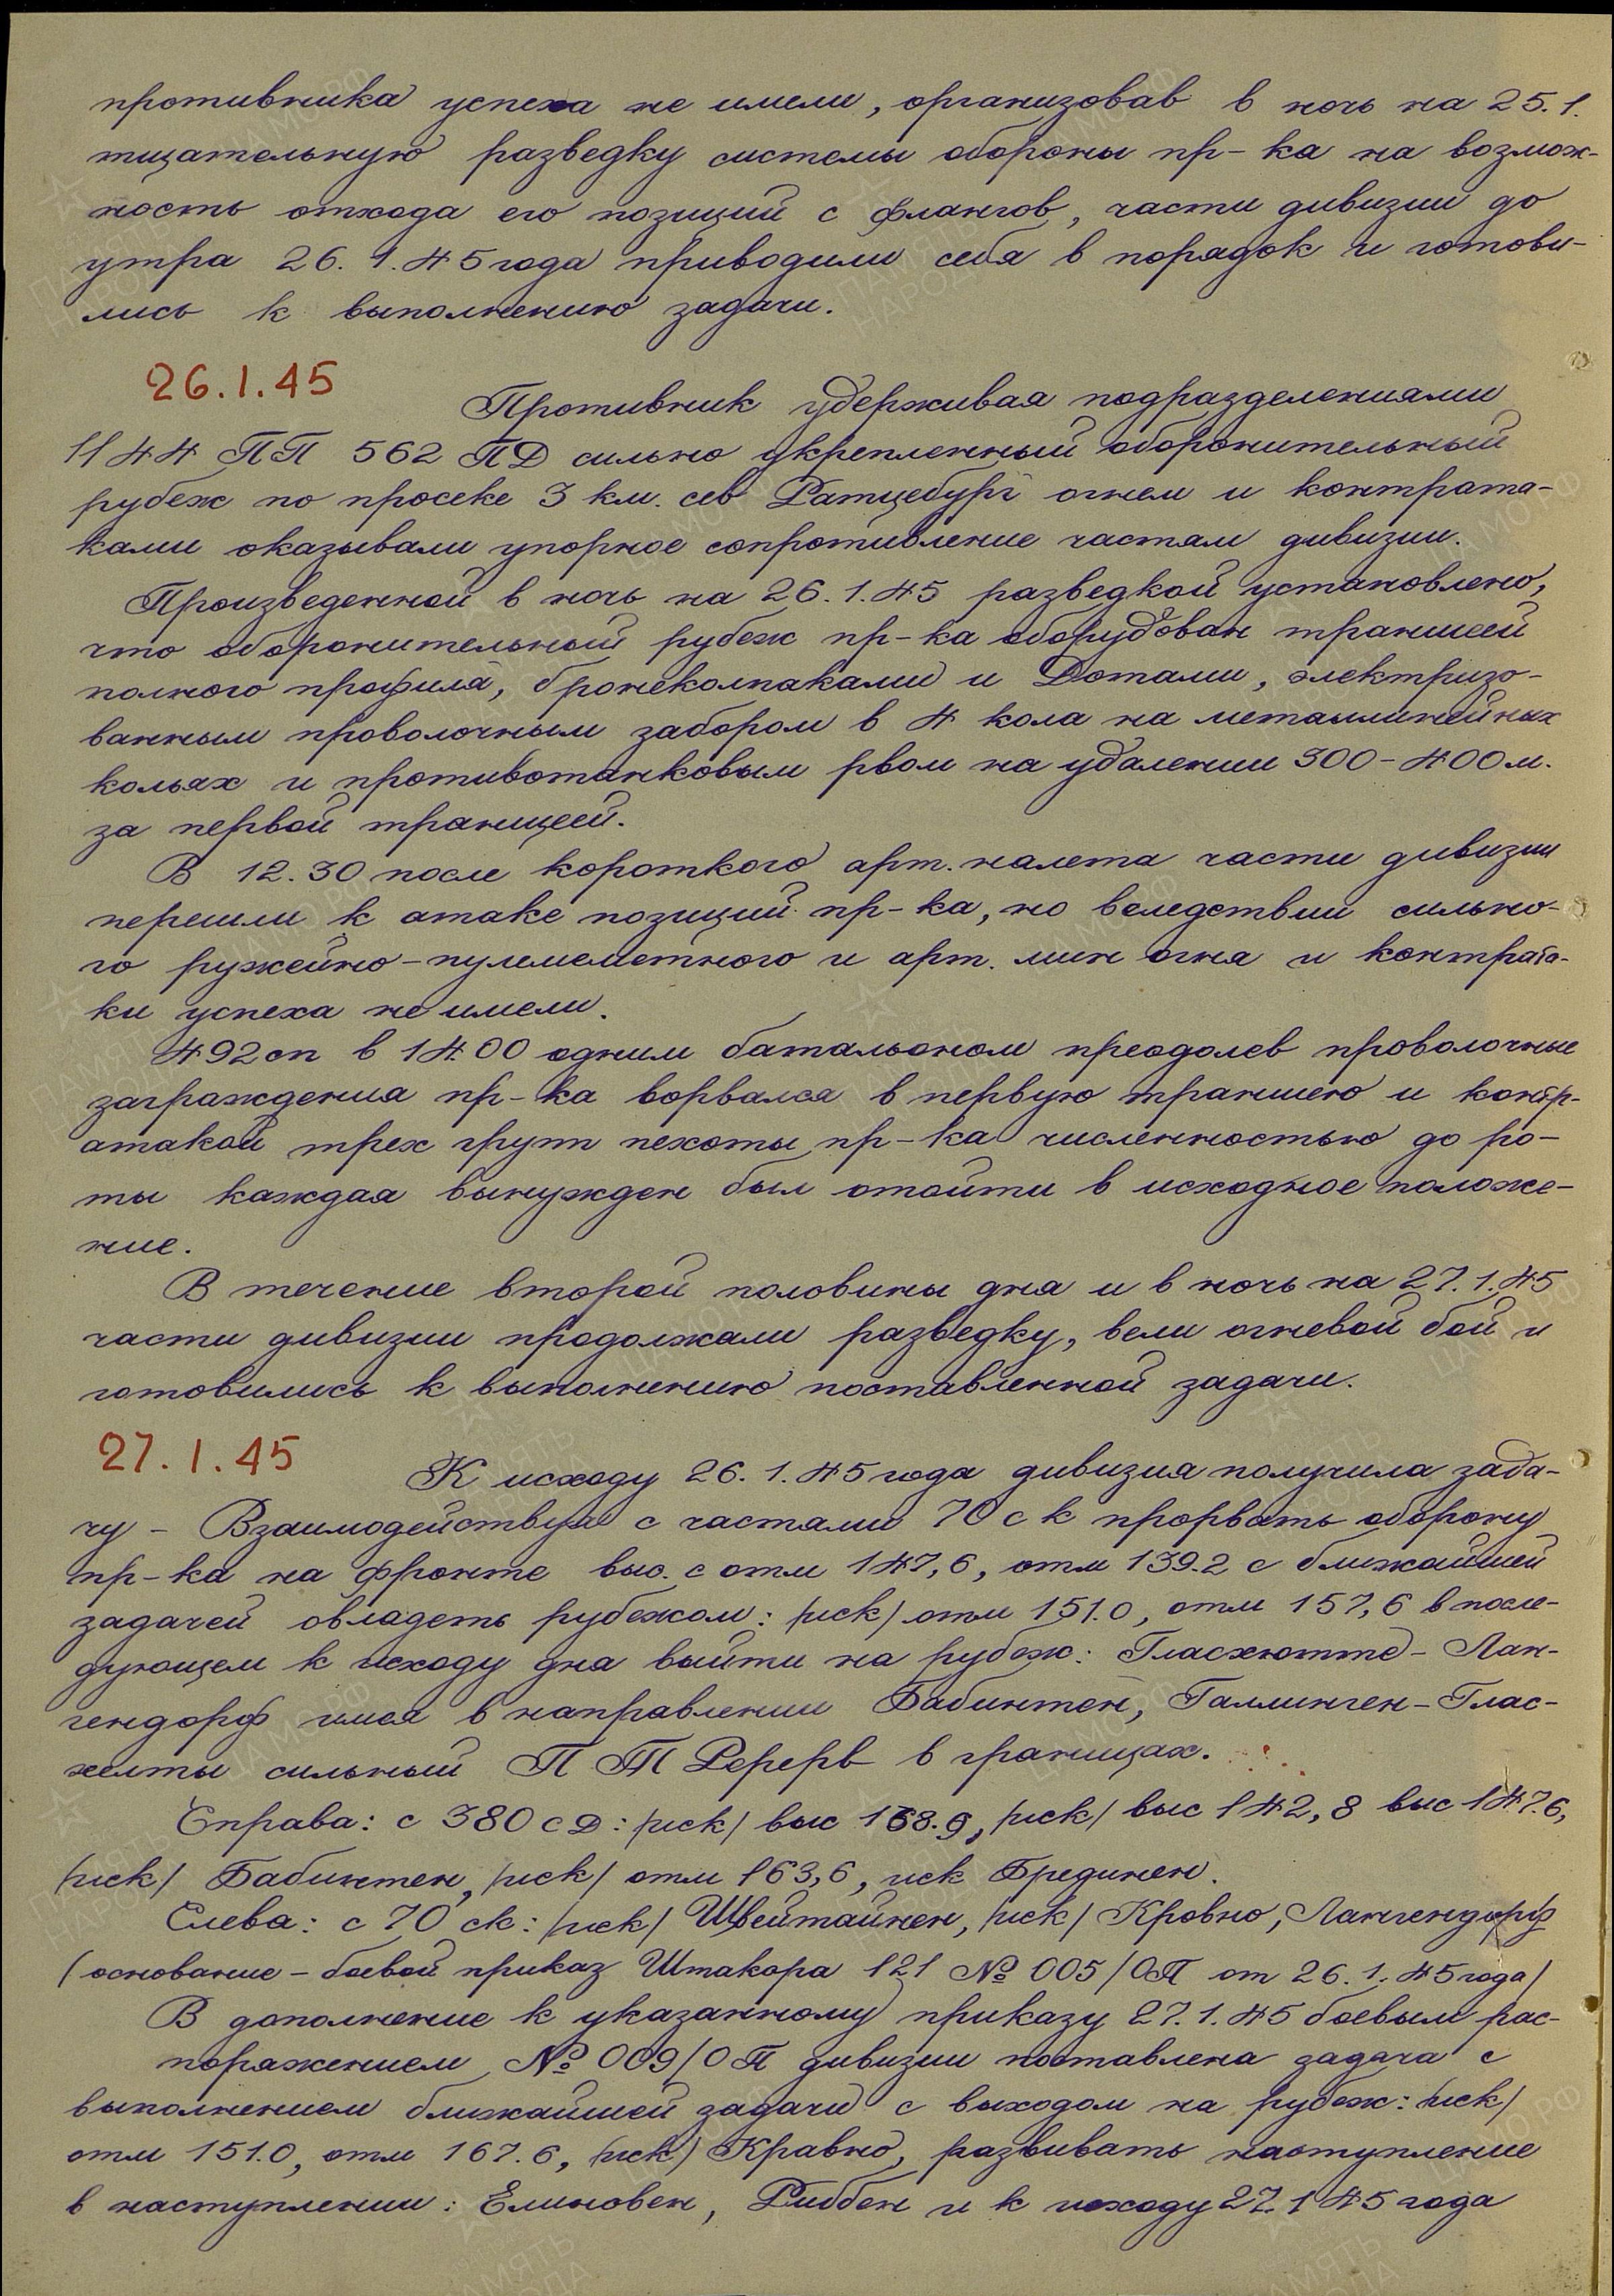 противника успеха не имели, организовав в ночь на 25.1.
тщательную разведку системы обороны пр-ка на возмож-
ность отхода его позиций с флангов, части дивизии до
утра 26.1.45 года приводили себя в порядок и готови-
лись к выполнению задачи.
26.1.45
Противник удерживая подразделениями
1144 ПП 562 ПД сильно укрепленный оборонительный
рубеж по просеке 3 км. сев Ратцебург огнем и контрата-
ками оказывали упорное сопротивление частям дивизии.
Произведенной в ночь на 26.1.45 разведкой установлено,
что оборонительный рубеж пр-ка оборудован траншеей
полного профиля, бронеколпаками и Дотами, электризо-
ванным проволочным забором в 4 кола на металлинейных
кольях и противотанковым рвом на удалении 300-400 м.
за первой траншеей.
В 12.30 после короткого арт. налета части дивизии
перешли к атаке позиций пр-ка, но вследствии сильно-
го ружейно-пулемеметного и арт. мин огня и контрата-
ки успеха не имели.
492 сп в 14.00 одним батальоном преодолев проволочные
заграждения пр-ка ворвался в первую траншею и контр-
атакой трех групп пехоты пр-ка численностью до ро-
ты каждая вынужден был отойти в исходное положе-
ние.
В течение второй половины дня и в ночь на 27.1.45
части дивизии продолжали разведку, вели огневой бой и
готовились к выполнению поставленной задачи.
27.1.45
К исходу 26.1.45 года дивизия получила зада-
чу - Взаимодействуя с частями 70 ск прорвать оборону
пр-ка на фронте выс. с отм 147,6, отм 139.2 с ближайшей
задачей овладеть рубежом: /иск/ отм 151.0, отм 157,6 в после-
дующем к исходу дня выйти на рубеж: Гласхютте - Лан-
гендорф имея в направлении Бабинтен, Галлинген - Глас-
хелты сильный ПТ Резерв в границах.
Справа: с 380 сд: /иск/ выс 168.9, /иск/ выс 142,8 выс 147.6,
/иск/ Бабинтен, /иск/ отм 163,6, иск Бредикен.
Слева: с 70 ск: /иск/ Швейтайнен, /иск/ Кровно, Лангендорф
/основание - боевой приказ Штакора 121 № 005/ОП от 26.1.45 года/
В дополнение к указанному приказу 27.1.45 боевым рас-
поряжением № 009/ОП дивизии поставлена задача с
выполнением ближайшей задачи с выходом на рубеж: /иск/
отм 151.0, отм 167.6, /иск/ Кравно, развивать наступление
в наступлении: Елиновен, Риббен и к исходу 27.1.45 года